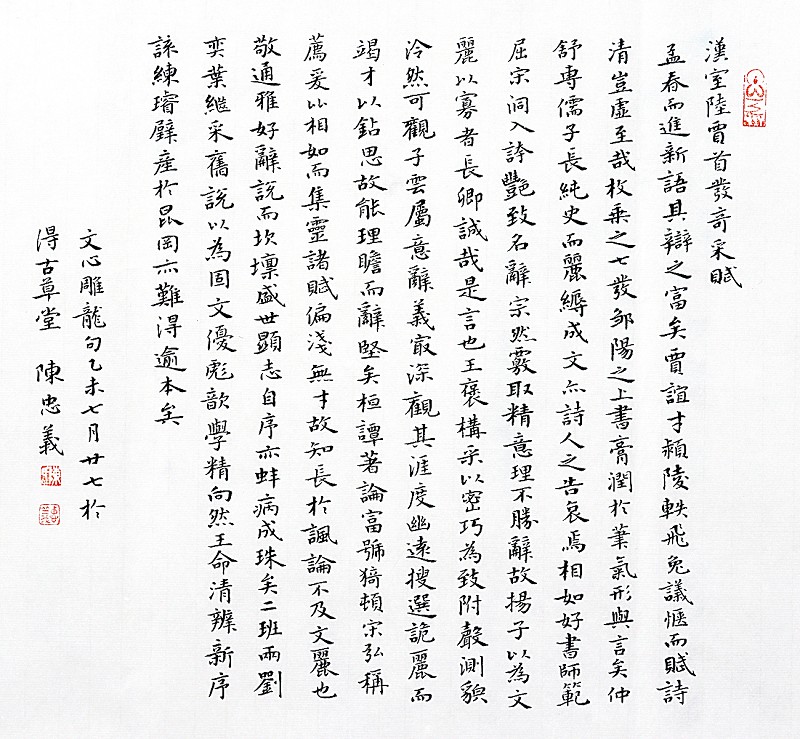 漢室陸賈首發奇采賦
孟春而進新語其辯之富矣賈誼才穎陵軼飛兔議愜而賦詩
清豈虛至哉枚乘之七發鄒陽之上書膏潤於筆氣形與言矣仲
舒專儒子長純史而麗縟成文亦詩人之告哀焉相如好書師範
屈宋洞入誇艷致名辭宗然覈取精意理不勝辭故揚子以為文
麗以寡者長卿誠哉是言也王褒構采以密巧為致附聲測貌
泠然可觀子雲屬意辭義最深觀其涯度幽遠搜選詭麗而
竭才以鉆思故能理贍而辭堅矣桓譚著論富號猗頓宋弘稱
薦爰比相如而集靈諸賦偏淺無才故知長於諷論不及文麗也
敬通雅好辭說而坎壈盛世顯志自序亦蚌病成珠矣二班兩劉
奕葉繼采舊說以為固文優彪歆學精向然王命清辨新序
該練璿璧產於昆岡亦難得逾本矣
文心雕龍句乙未七月廿七於
得古草堂 陳忠義